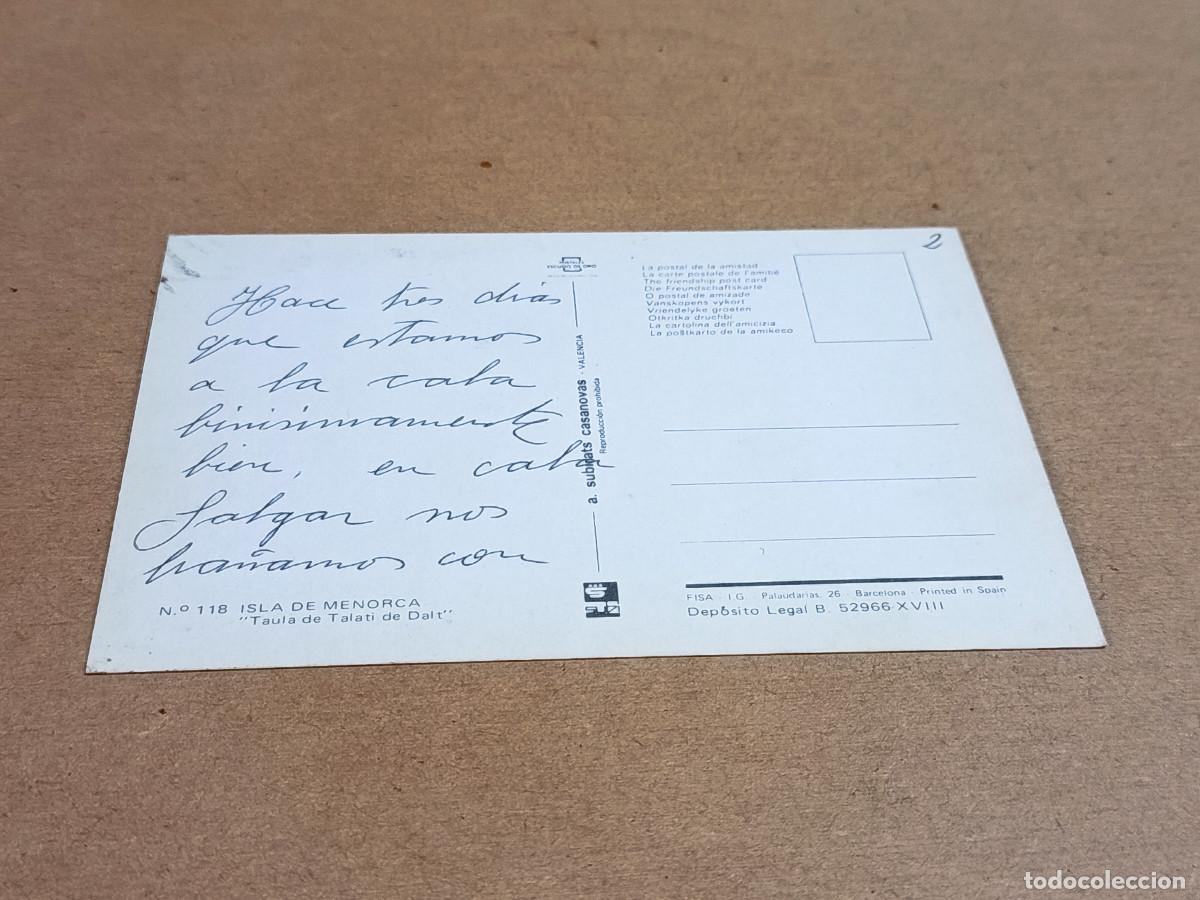 Hace tres dias
que estamos
a la cala
binisimamente
bien, en cala
Salgar nos
bañamos con
Nº 118 ISLA DE MENORCA
"Taula de Talati de Dalt"
a. subirats casanovas - VALENCIA
Reproducción prohibida
2
La postal de la amistad
La carte postale de l'amitié
The friendship post card
Die Freundschaftskarte
O postal de amizade
Vanskopens vykort
Vriendelyke groeten
Otkritka druchbi
La cartolina dell'amicizia
La poŝtkarto de la amikeco
FISA - I.G. - Palaudarias, 26 - Barcelona - Printed in Spain
Depósito Legal B. 52966-XVIII
todocoleccion